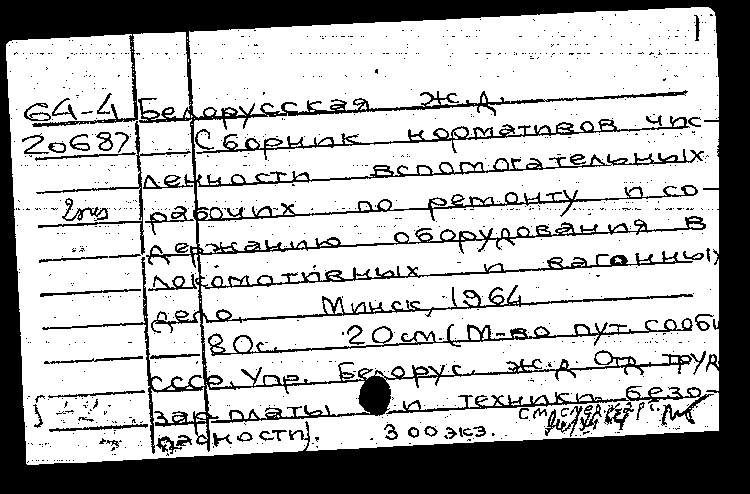 64-4 Белорусская ж.д.
20687 Сборник нормативов чис-
ленности вспомогательных
2 экз рабочих по ремонту и со-
держанию оборудования в
локомотивных и вагонных
депо. Минск, 1964
80с. 20см. (М-во пут. сообщ
СССР. Упр. Белорус. ж.д. Отд. труд
зарплаты и техники безо-
пасности). 300 экз.